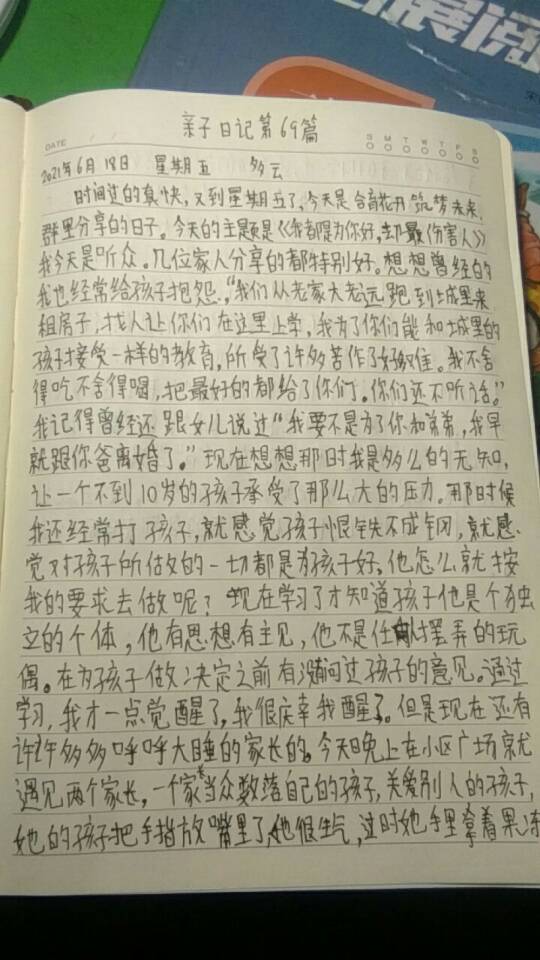 展阅
亲子日记第69篇
DATE
S M T W T F S
2021年6月18日 星期五 多云
时间过的真快,又到星期五了,今天是含育花开筑梦未来
群里分享的日子。今天的主题是《我都是为你好,却最伤害人》
我今天是听众。几位家人分享的都特别好。想想曾经的
我也经常给孩子抱怨,“我们从老家大老远跑到城里来
租房子,找人让你们在这里上学,我为了你们能和城里的
孩子接受一样的教育,所受了许多苦作了好多难。我不舍
得吃不舍得喝,把最好的都给了你们。你们还不听话。”
我记得曾经还跟女儿说过“我要不是为了你和弟弟,我早
就跟你爸离婚了。”现在想想那时我是多么的无知,
让一个不到10岁的孩子承受了那么大的压力。那时候
我还经常打孩子,就感觉孩子恨铁不成钢,就感
觉对孩子所做的一切都是为孩子好,他怎么就按
我的要求去做呢?现在学习了才知道孩子他是个独
立的个体,他有思想有主见,他不是任人摆弄的玩
偶。在为孩子做决定之前有没问过孩子的意见。通过
学习,我才一点觉醒了,我很庆幸我醒了。但是现在还有
许许多多呼呼大睡的家长的。今天晚上在小区广场就
遇见两个家长,一个家长当众数落自己的孩子,关爱别人的孩子,
她的孩子把手指放嘴里了,他很生气,这时她手里拿着果冻